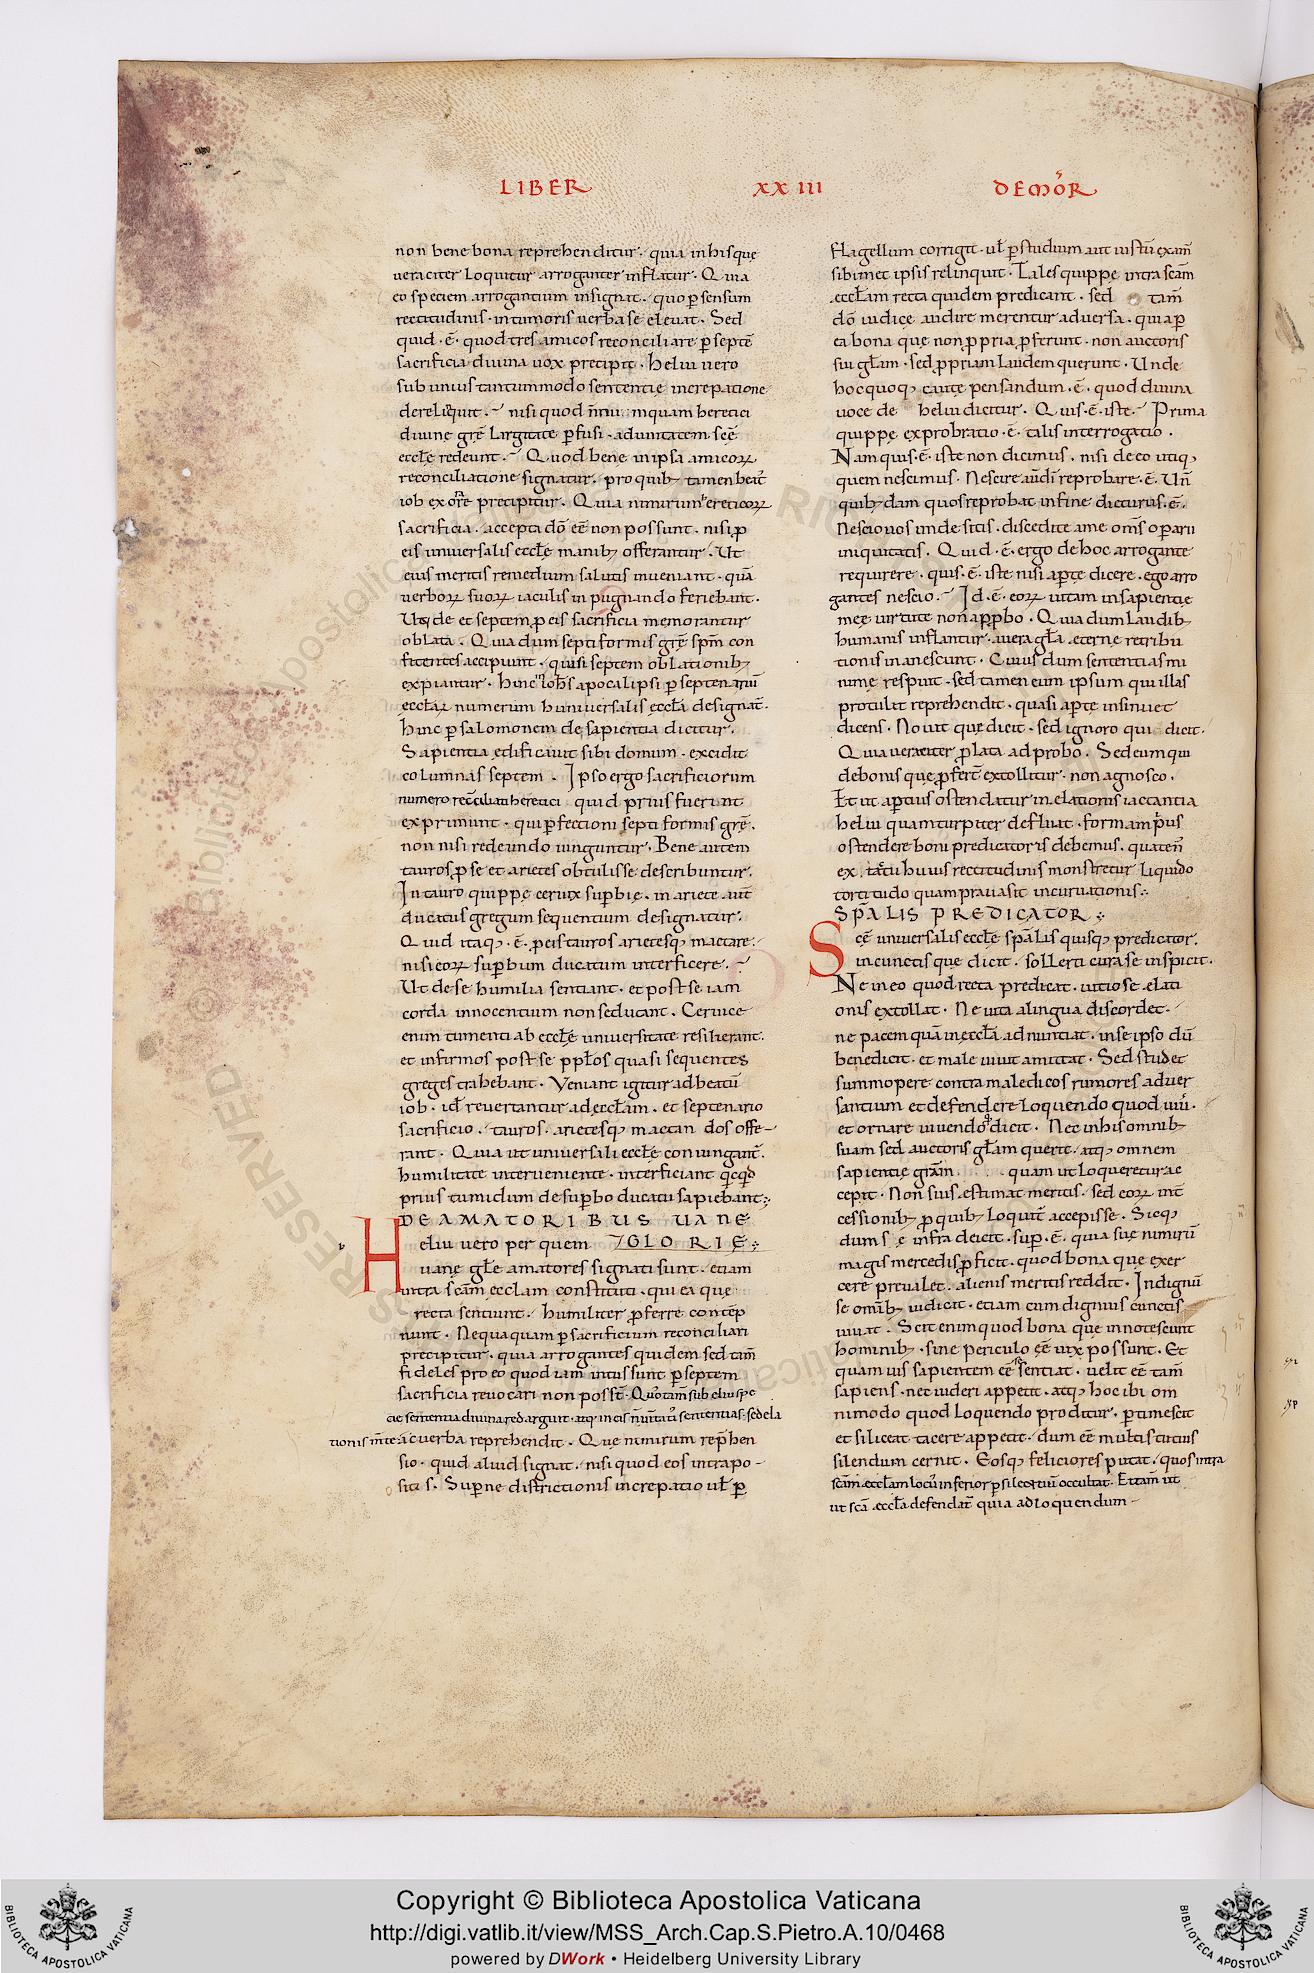 LIBER XXIII DEMOR̄
non bene bona reprehenditur · quia in his que
veraciter loquitur arroganter inflatur · Quia
eo speciem arrogantium insignat · quo p̄ sensum
rectitudinis · in tumoris verba se elevat · Sed
quid · ē · quod tres amicos reconciliare p̄ septē
sacrificia divina vox precipit · heliu vero
sub unius tantummodo sententię increpatione
derelinquit · nisi quod
divinę grē largitate p̄fusi · ad unitatem scē
ecclę redeunt · Quod bene in ipsa amicoꝝ
reconciliatione signatur · pro quibꝫ tamen beat᷒
iob ex oꝛ̄e precipitur · Quia nimirum hereticoꝝ
sacrificia · accepta dō eē non possunt · nisi ꝓ
eis universalis ecclę manibꝫ offerantur · Ut
eius meritis remedium salutis inveniant · quā
verboꝝ suoꝝ iaculis inpugnando feriebant ·
Unde et septem ꝓ eis sacrificia memorantur
oblata · Quia dum septiformis grę spm̄ con
fitentes accipiunt · quasi septem oblationibꝫ
expiantur · Hinc in ioh̄s apocalipsi p̄ septenariū
ecclaꝝ numerum huniversalis ęccła designat᷒ ·
hinc p̄ salomonem de sapientia dicitur ·
Sapientia ędificavit sibi domum · excidit
columnas septem · Ipso ergo sacrificiorum
numero recōciliati heretici quid prius fuerint
exprimunt · qui p̄fectioni septiformis grē ·
non nisi redeundo iunguntur · Bene autem
tauros ꝓ se et arietes obtulisse describuntur ·
In tauro quippe cervix sup̄bię · in ariete aut̄
ducatus gregum sequentium designatur ·
Quid itaqꝫ · ē · ꝓ eis tauros arietesqꝫ mactare ·
nisi eoꝝ sup̄bum ducatum interficere ·
Ut de se humilia sentiant · et post se iam
corda innocentium non seducant · Cervice
enim tumenti ab ecclę universitate resilierant ·
et infirmos post se pp̄los quasi sequentes
greges trahebant · Veniant igitur ad beatū
iob · id̄ revertantur ad ęccłam · et septenario
sacrificio · tauros · arietesqꝫ mactandos offe-
rant · Quia ut universali ecclę coniungant᷒ ·
humilitate interveniente · interficiant qͥcqͥd
prius tumidum de sup̄bo ducatu sapiebant ·
DE AMATORIBUS UANĘ
Heliu vero per quem GLORIĘ
vanę głę amatores signati sunt · etiam
intra scām ecclam constituti · qui ea que
recta sentiunt · humiliter p̄ferre contēp
nunt · Nequaquam p̄ sacrificium reconciliari
precipitur · quia arrogantes quidem sed tam̄
fideles pro eo quod iam intus sunt p̄ septem
sacrificia revocari non possꝫ · Quos tam̄ sub eliu spe
cie sententia divina redarguit · atqꝫ in eis sententias · sed ela
tionis verba reprehendit · Que nimirum rep̄hen
sio · quid aliud signat · nisi quod eos intra po-
sitis · Supernę districtionis increpatio uł p̄
flagellum corrigit · uł p̄ studium aut iustū exam̄
sibimet ipsis relinquit · Tales quippę intra scām
ęccłam recta quidem predicant · sed tam̄
dō iudice audire merentur adversa · quia p̄
ea bona quę non ꝓpria ꝓferunt · non auctoris
sui głam · sed ꝓpriam laudem querunt · Unde
hoc quoqꝫ caute pensandum · ē · quod divina
voce de heliu dicitur · Quis · ē · iste · Prima
quippe exprobratio · ē · talis interrogatio ·
Nam quis · ē · iste non dicimus · nisi de eo utiqꝫ
quem nescimus · Nescire aūt dī reprobare · ē · Un̄
quibꝫdam quos reprobat in fine dicturus · ē ·
Nescio vos unde sitis · discedite a me om̄s op̄arii
iniquitatis · Quid · ē · ergo de hoc arrogante
requirere · quis · ē · iste nisi ap̄te dicere · ego arro
gantes nescio · Id · ē · eoꝝ vitam in sapientię
męę virtute non app̄bo · Quia dum laudibꝫ
humanis inflantur · a vera gła · ęternę retribu
tionis inanescunt · Cuius dum sententias mi
nime respuit · sed tamen eum ipsum qui illas
protulit reprehendit · quasi ap̄te insinuet
dicens · Novit que dicit · sed ignoro qui dicit ·
Quia veraciter ꝓlata adprobo · Sed eum qui
de bonis que ꝓfert extollitur · non agnosco ·
Et ut ap̄tius ostendatur in elationis iactantia
heliu quam turpiter defluat · formam p̄us
ostendere boni predicatoris debemus · quaten᷒
ex · statu huius rectitudinis monstretur liquido
tortitudo quam prava sit incurvationis ·
SPĀLIS PREDICATOR ·
Scę universalis ecclę spālis quisqꝫ predicator ·
in cunctis que dicit · sollerti cura se inspicit ·
Ne in eo quod recta predicat · vitio se elati
onis extollat · Ne vita a lingua discordet ·
ne pacem quā in ęccła adnuntiat · in se ipso dū
benedicit · et male vivit amittat · Sed studet
summopere contra maledicos rumores adver
santium et defendere loquendo quod vivit ·
et ornare vivendo qͩ dicit · Nec in his omnibꝫ
suam sed auctoris głam querit · atqꝫ omnem
sapientię grām quam ut loqueretur ac
cepit · Non suis ęstimat meritis · sed eoꝝ int᷒
cessionibꝫ ꝓ quibꝫ loquit᷒ accepisse · Sicqꝫ
dum se infra deicit · sup̄ · ē · quia suę nimirū
magis mercedis ꝓficit · quod bona que exer
cere prevalet · alienis meritis reddit · Indignū
se omībꝫ iudicat · etiam cum dignius cunctis
vivat · Scit enim quod bona que innotescunt
hominibꝫ · sine periculo eē vix possunt · Et
quamvis sapientem eē se sentiat · velit eē tam̄
sapiens · nec videri appetit · atqꝫ hoc ibi om
nimodo quod loquendo proditur · p̄timescit
et si liceat tacere appetit · dum eē multis tutius
silendum cernit · Eosqꝫ feliciores putat · quos intra
scām · ęccłam locus inferior p̄ silentiū occultat · Et tam̄ ut
ut scā · ęccła defendat᷒ quia ad loquendum -
Copyright © Biblioteca Apostolica Vaticana
http://digi.vatlib.it/view/MSS_Arch.Cap.S.Pietro.A.10/0468
powered by DWork • Heidelberg University Library
BIBLIOTECA APOSTOLICA VATICANA
BIBLIOTECA APOSTOLICA VATICANA